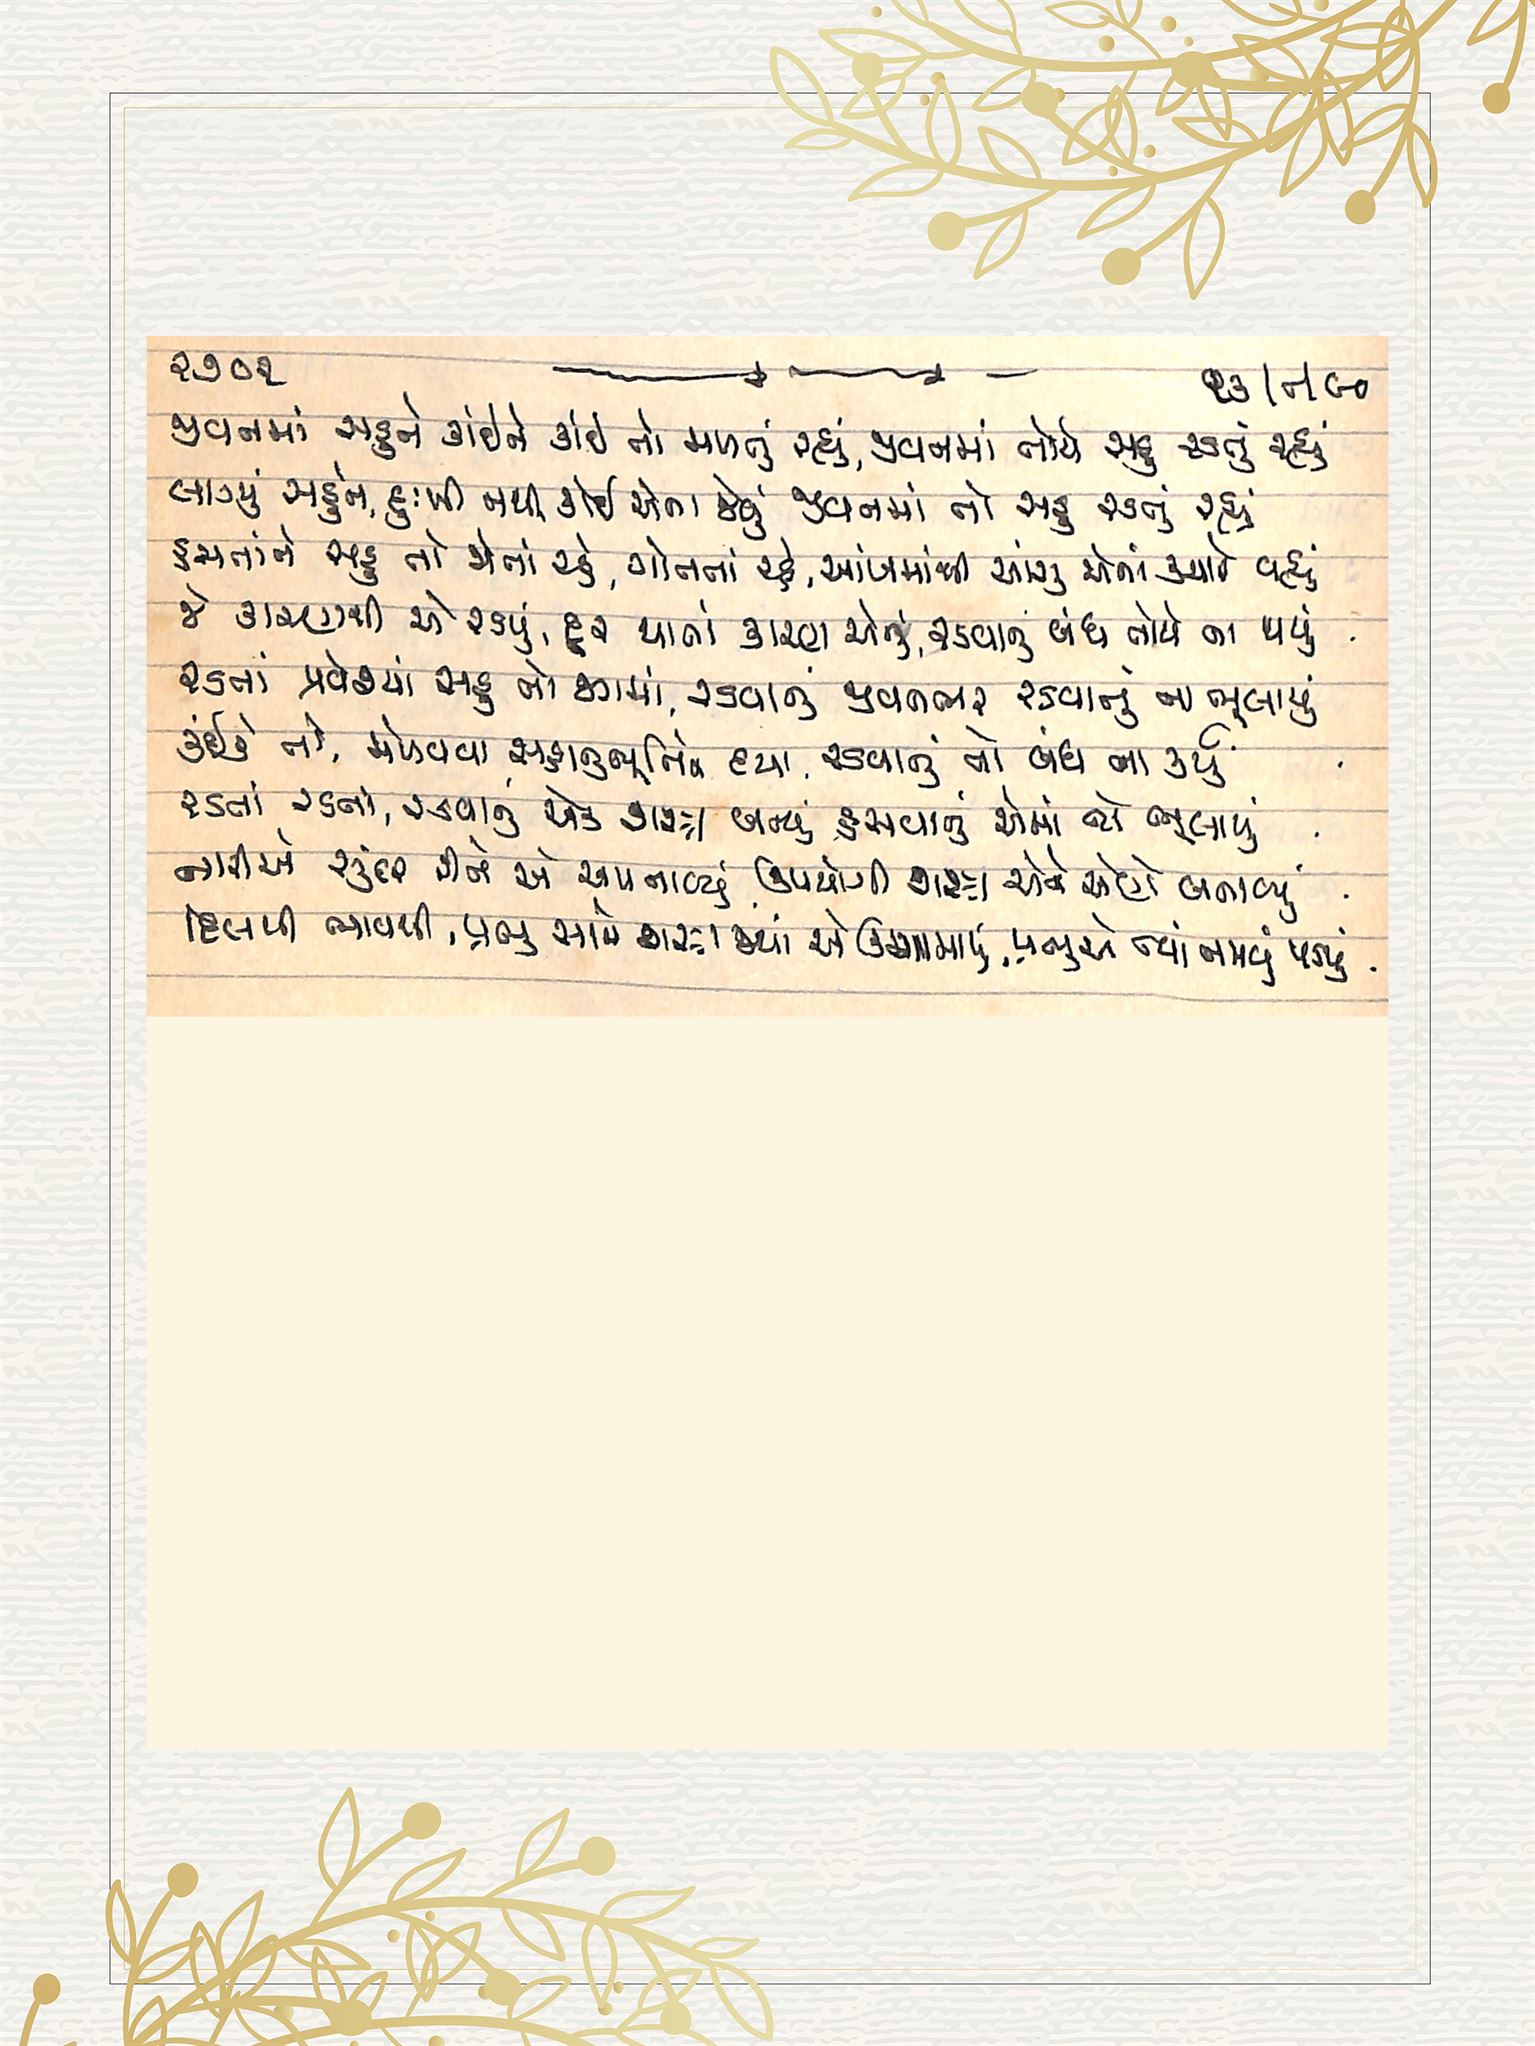 ૨૭૦૨ ૨૩/૮/૯૦
જીવનમાં સહુને કાંઈને કાંઈ તો મળતું રહ્યું, જીવનમાં તોયે સહુ રડતું રહ્યું
લાગ્યું સહુને, દુઃખી નથી કોઈ એના જેવું જીવનમાં તો સહુ રડતું રહ્યું
હસતાંને સહુ તો જોતાં રહે, ગોતતાં રહે, આંખમાંથી આંસુ એનાં ક્યારે વહ્યું
જે કારણથી એ રડયું, દૂર થાતાં કારણ એનું, રડવાનું બંધ તોયે ના થયું .
રડતાં પ્રવેશ્યાં સહુ તો જગમાં, રડવાનું જીવનભર રડવાનું ના ભૂલાયું
કંઈકે તો, મેળવવા સહાનુભૂતિને દયા, રડવાનું તો બંધ ના કર્યું .
રડતાં રડતાં, રડવાનું એક શાસ્ત્ર બન્યું હસવાનું એમાં જે ભૂલાયું .
નારીએ સુંદર રીતે એ અપનાવ્યું ઉપયોગી શસ્ત્ર એને એણે બનાવ્યું .
દિલથી ભાવથી, પ્રભુ સામે શસ્ત્ર જ્યાં એ, પ્રભુએ ત્યાં નમવું પડ્યું .